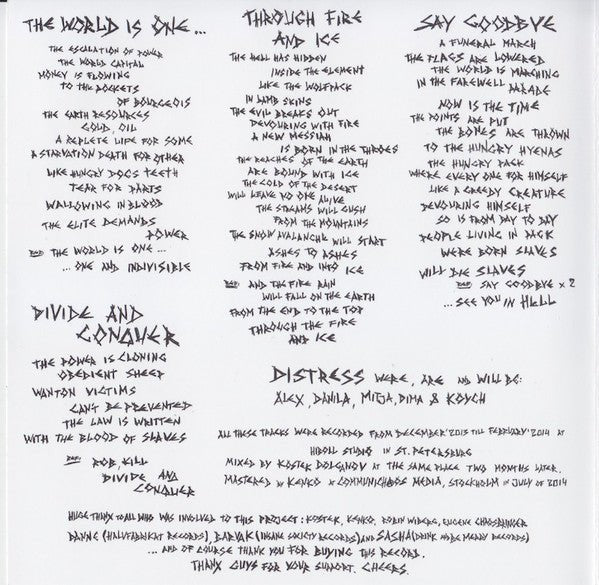 THE WORLD IS ONE...
THE ESCALATION OF POWER
THE WORLD CAPITAL
MONEY IS FLOWING
TO THE POCKETS
OF BOURGEOIS
THE EARTH RESOURCES
GOLD, OIL
A REPLETE LIFE FOR SOME
A STARVATION DEATH FOR OTHER
LIKE HUNGRY DOGS TEETH
TEAR FOR PARTS
WALLOWING IN BLOOD
THE ELITE DEMANDS
POWER
THE WORLD IS ONE...
...ONE AND INDIVISIBLE
DIVIDE AND
CONQUER
THE POWER IS CLONING
OBEDIENT SHEEP
WANTON VICTIMS
CAN'T BE PREVENTED
THE LAW IS WRITTEN
WITH THE BLOOD OF SLAVES
ROB, KILL
DIVIDE AND
CONQUER
THROUGH FIRE
AND ICE
THE HELL HAS HIDDEN
INSIDE THE ELEMENT
LIKE THE WOLFPACK
IN LAMB SKINS
THE EVIL BREAKS OUT
DEVOURING WITH FIRE
A NEW MESSIAH
IS BORN IN THE THROES
THE REACHES OF THE EARTH
ARE BOUND WITH ICE
THE COLD OF THE DESERT
WILL LEAVE NO ONE ALIVE
THE STREAMS WILL GUSH
FROM THE MOUNTAINS
THE SNOW AVALANCHE WILL START
ASHES TO ASHES
FROM FIRE AND INTO ICE
AND THE FIRE RAIN
WILL FALL ON THE EARTH
FROM THE END TO THE TOP
THROUGH THE FIRE
AND ICE
SAY GOODBYE
A FUNERAL MARCH
THE FLAGS ARE LOWERED
THE WORLD IS MARCHING
IN THE FAREWELL
PARADE
NOW IS THE TIME
THE POINTS ARE PUT
THE BONES ARE THROWN
TO THE HUNGRY HYENAS
THE HUNGRY PACK
WHERE EVERY ONE FOR HIMSELF
LIKE A GREEDY CREATURE
DEVOURING HIMSELF
SO IS FROM DAY TO DAY
PEOPLE LIVING IN PACK
WERE BORN SLAVES
WILL DIE SLAVES
SAY GOODBYE x 2
...SEE YOU IN HELL
DISTRESS WERE, ARE AND WILL BE:
ALEX, DANILA, MITJA, DIMA & KOYCH
ALL THESE TRACKS WERE RECORDED FROM DECEMBER'2013 TILL FEBRUARY'2014 AT
STUDIO IN ST. PETERSBURG
MIXED BY KOSTEK DOLGANOV AT THE SAME PLACE TWO MONTHS LATER.
MASTERED BY KENKO COMMUNICHAOS MEDIA, STOCKHOLM IN JULY OF 2014
HUGE THANX TO ALL WHO WAS INVOLVED TO THIS PROJECT: KOSTEK, KENKO, ROBIN WIBERG, EUGENE
DANNE (HALVFABRIKAT RECORDS), BARVAK (INSANE SOCIETY RECORDS) AND SASHA (DRINK MORE MERRY RECORDS)
...AND OF COURSE THANK YOU FOR BUYING THIS RECORD.
THANX GUYS FOR YOUR SUPPORT. CHEERS.